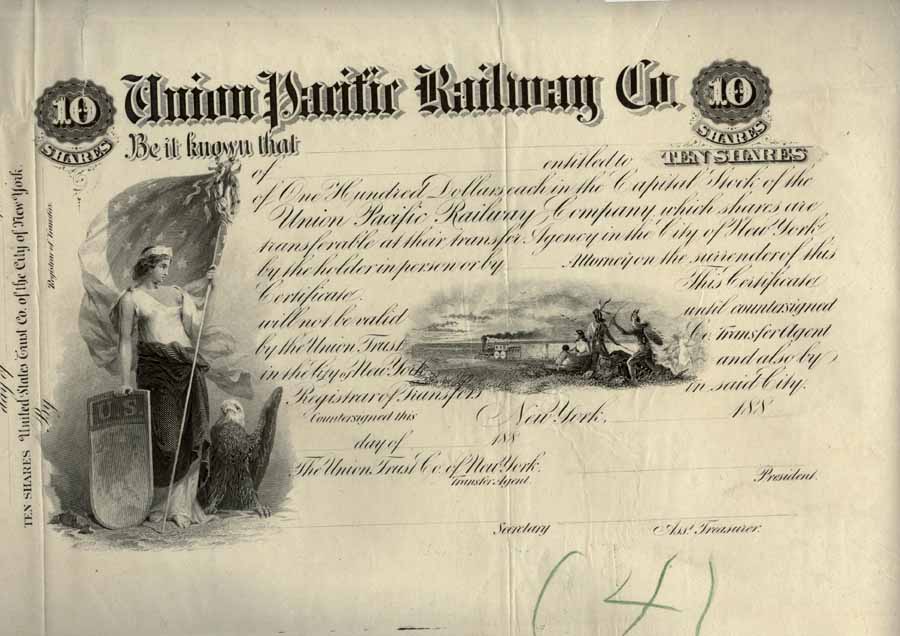 Union Pacific Railway Co.
10
SHARES
10
SHARES
TEN SHARES
Be it known that
of entitled to
of One Hundred Dollars each in the Capital Stock of the
Union Pacific Railway Company which shares are
transferable at their transfer Agency in the City of New York
by the holder in person or by Attorney on the surrender of this
Certificate. This Certificate
will not be valid until countersigned
by the Union Trust Co. Transfer Agent
in the City of New York and also by
Registrar of Transfers in said City.
Countersigned this New York, 188
day of 188
The Union Trust Co. of New York.
Transfer Agent.
President.
Secretary Asst. Treasurer.
U.S.
day of
By
TEN SHARES United States Trust Co. of the City of New York
Registrar of Transfer
(4)